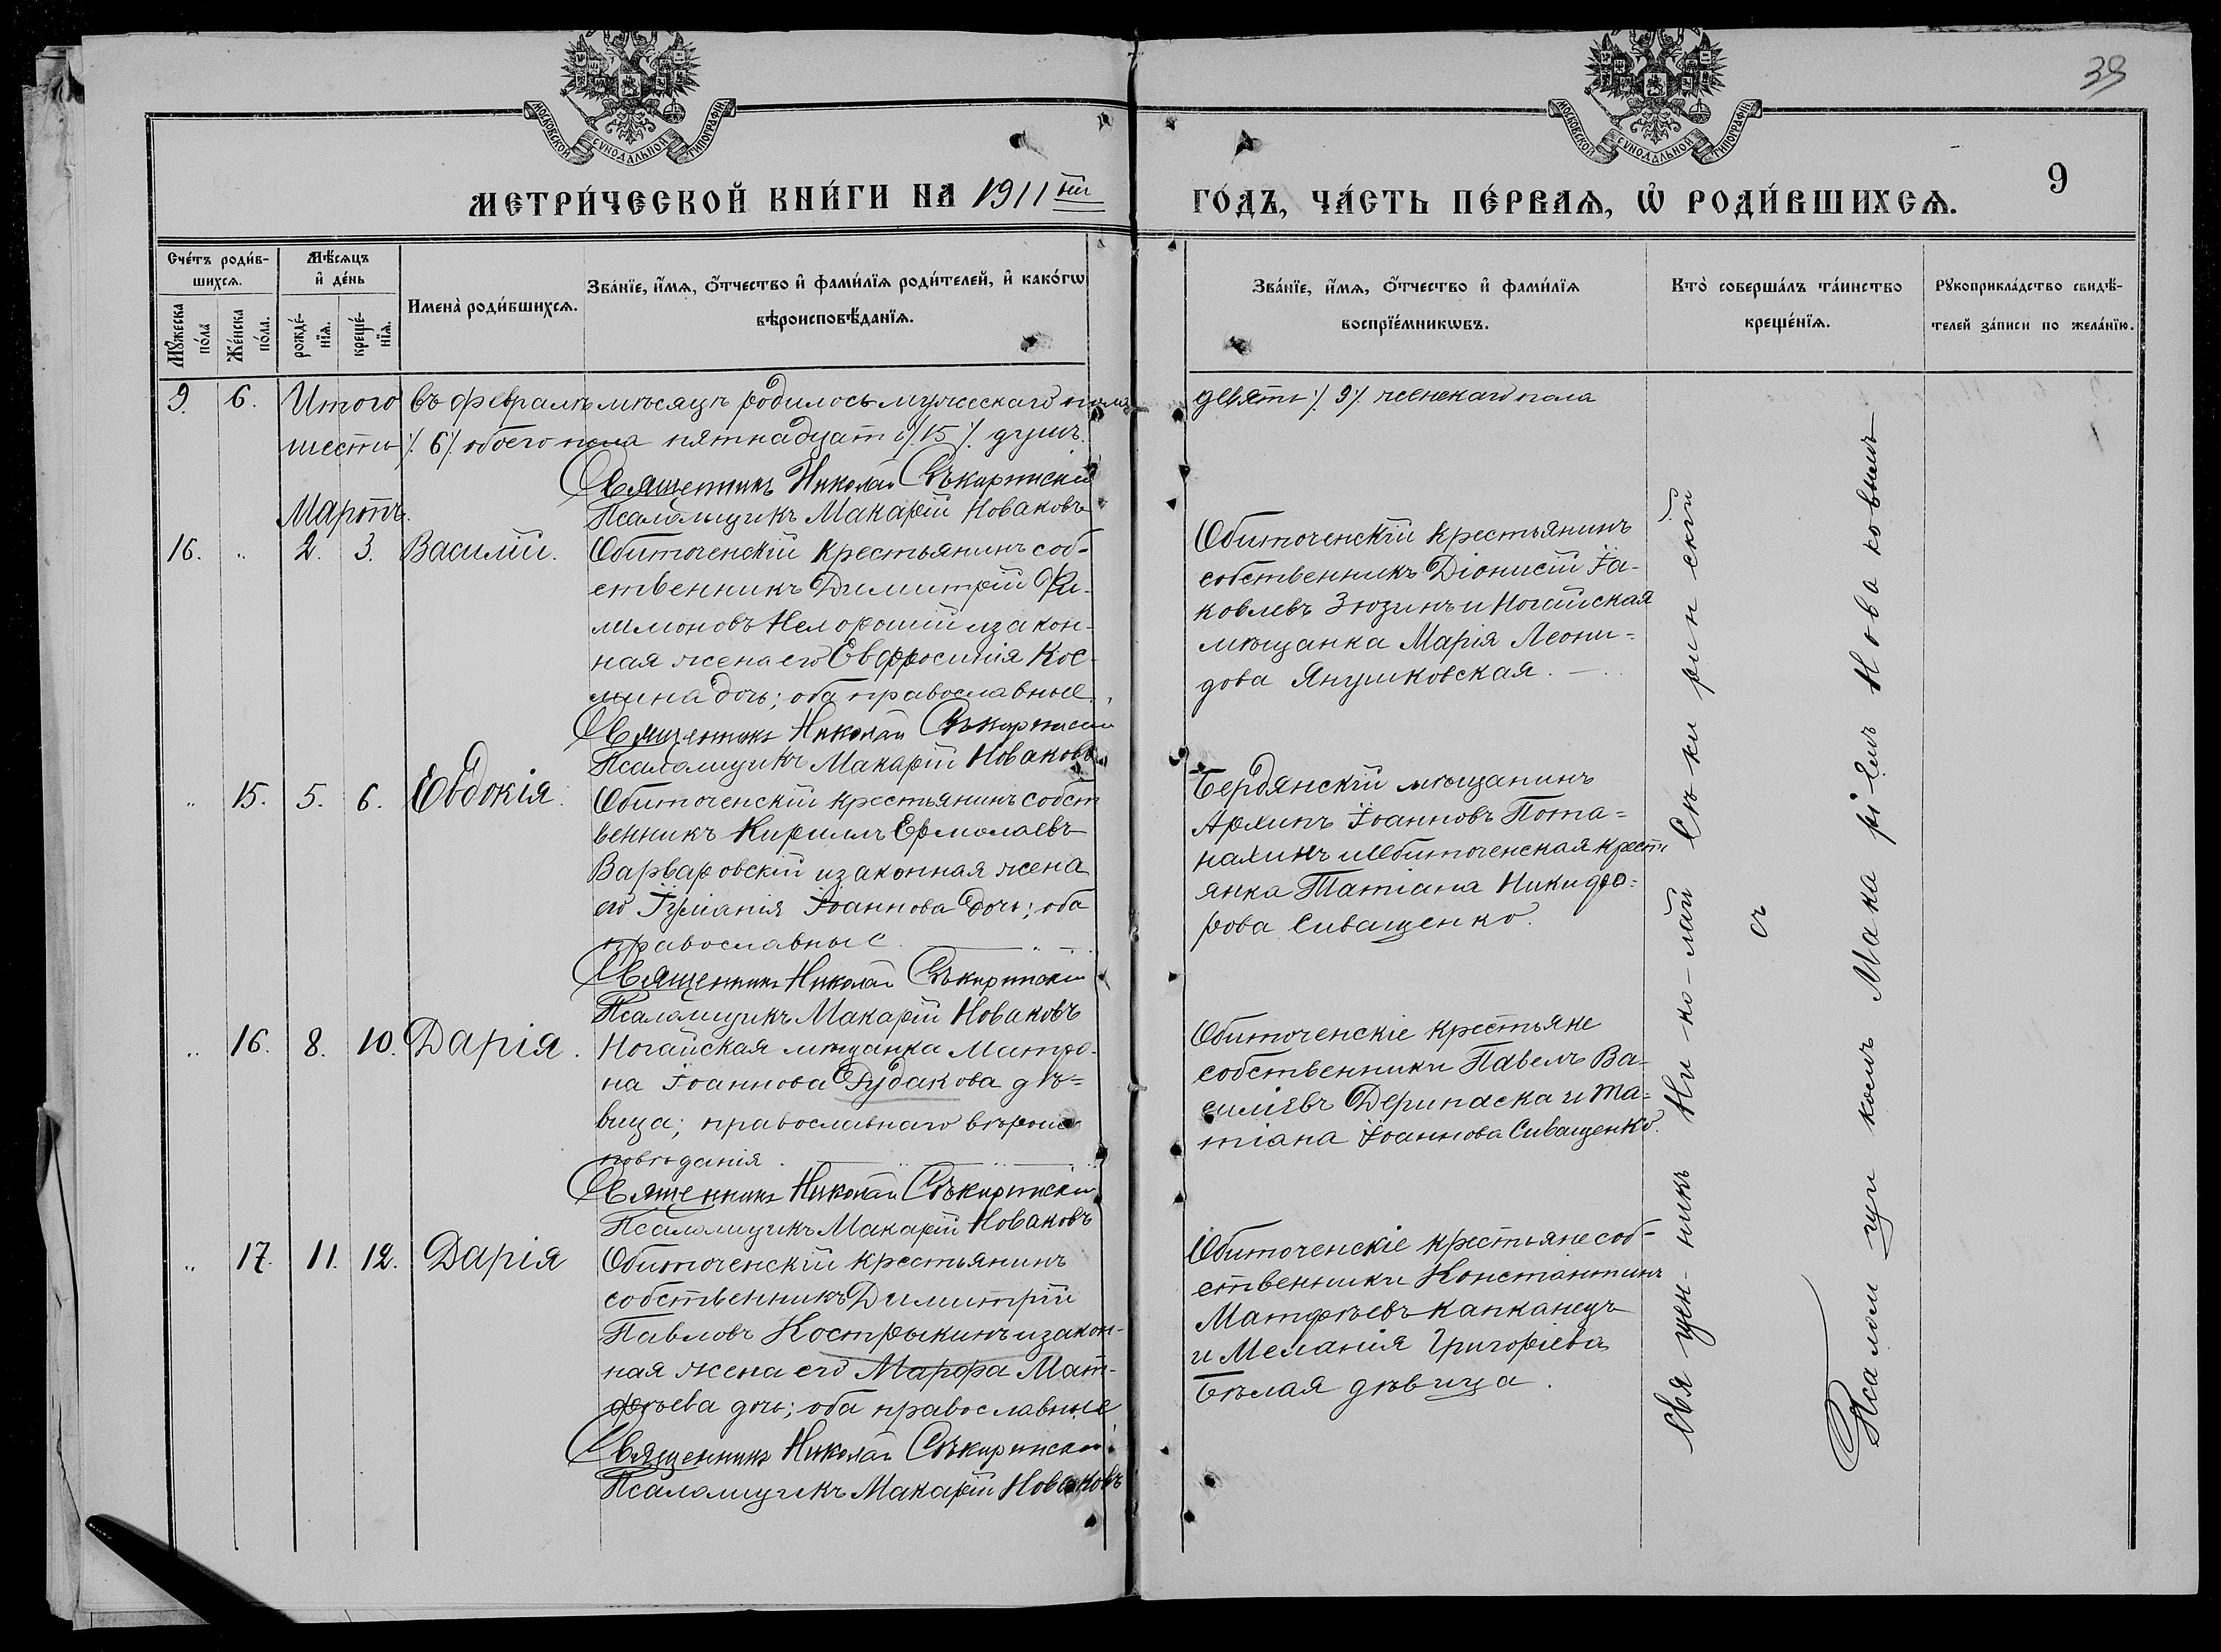 МОСКОВСКОЙ СѴНОДАЛЬНОЙ ТИПОГРАФІИ
МОСКОВСКОЙ СѴНОДАЛЬНОЙ ТИПОГРАФІИ
39
9
МЕТРИ́ЧЕСКОЙ КНИ́ГИ НА 1911 ый
ГО́ДЪ, ЧА́СТЬ ПЕ́РВАѦ, Ѡ҆ РОДИ́ВШИХСѦ.
Сче́тъ роди́в-
шихсѧ.
Мѣ́сѧцъ
и҆ де́нь
Мꙋ́жеска
по́ла
Же́нска
по́ла.
рожде́-
нїѧ.
креще́-
нїѧ.
Имена̀ роди́вшихсѧ.
Зва́нїе, и҆́мѧ, ѻ҆́тчество и҆ фами́лїѧ роди́телей, и҆ како́гѡ
вѣроисповѣ́данїѧ.
Зва́нїе, и҆́мѧ, ѻ҆́тчество и҆ фами́лїѧ
воспрїе́мникѡвъ.
Кто̀ соверша́лъ та́инство
креще́нїѧ.
Рꙋкоприкла́дство свидѣ́-
телей за́писи по жела́нїю.
9. 6. Итого въ февралѣ мѣсяцѣ родилось мужескаго пола
девять /. 9 /. женскаго пола
шесть /. 6 /. обоего пола пятнадцать /. 15 /. душъ.
Священникъ Николай Сѣкиринскій
Псаломщикъ Макарій Новаковъ
Мартъ.
16. " 2. 3. Василій. Обиточенскій крестьянинъ соб-
ственникъ Димитрій Фи-
лимоновъ Нехорошій и закон-
ная жена его Евфросинія Кос-
мина дочь; оба православные.
Священникъ Николай Сѣкиринскій
Псаломщикъ Макарій Новаковъ
Обиточенскій крестьянинъ
собственникъ Діонисій Іа-
ковлевъ Зюзинъ и Ногайская
мѣщанка Марія Леони-
дова Янушковская.
" 15. 5. 6. Евдокія. Обиточенскій крестьянинъ собст
венникъ Кириллъ Ермолаевъ
Варваровскій и законная жена
его Іуліанія Іоаннова дочь; оба
православные.
Священникъ Николай Сѣкиринскій
Псаломщикъ Макарій Новаковъ
Бердянскій мѣщанинъ
Архипъ Іоанновъ Пота-
нахинъ и Обиточенская крестъ
янка Татіана Никифо-
рова Сиващенко.
" 16. 8. 10. Дарія. Ногайская мѣщанка Матро-
на Іоаннова Рудакова дѣ-
вица; православнаго вѣроис-
повѣданія.
Священникъ Николай Сѣкиринскій
Псаломщикъ Макарій Новаковъ
Обиточенскіе крестьяне
собственники Павелъ Ва-
силіевъ Дерипаска и Та-
тіана Іоаннова Сиващенко.
" 17. 11. 12. Дарія Обиточенскій крестьянинъ
собственникъ Димитрій
Павловъ Кострыкинъ и закон-
ная жена его Марфа Мат-
фѣева дочь; оба православные
Священникъ Николай Сѣкиринскій
Псаломщикъ Макарій Новаковъ
Обиточенскіе крестьяне соб-
ственники Константинъ
Матфѣевъ Капканецъ
и Меланія Григоріева
Бѣлая дѣвица.
Свя щен- никъ Ни ко- лай Сѣ ки рин скій
съ
Псалом щи комъ Мака рі емъ Нова ковымъ